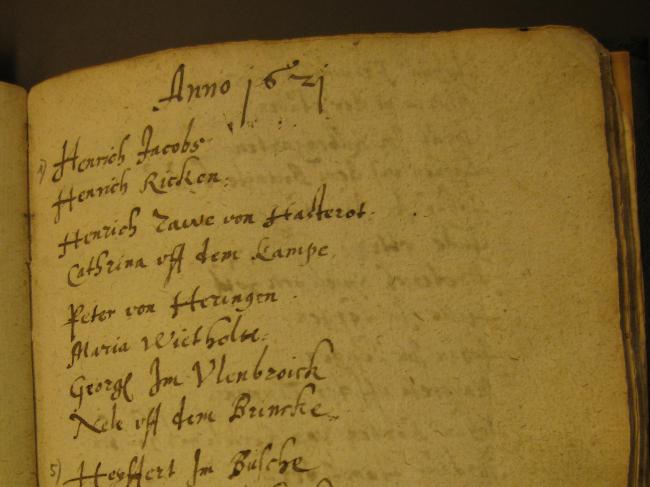 Anno 1621
1) Henrich Jacobs
Henrich Ricken
Henrich Tawe von Hasterot.
Cathrina vff dem Kampe
Peter von Heringen
Maria Wietholtz
Georg Im Vlenbroick
Nele vff dem Brincke
5) Heyffert Im Busche